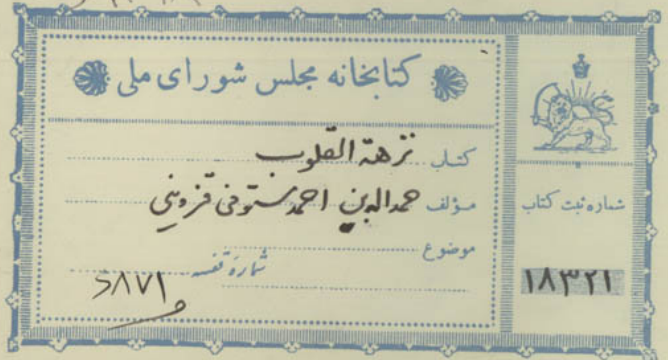 کتابخانه مجلس شورای ملی
کتاب نزهة القلوب
مؤلف حمدالدین احمد مستوفی قزوینی
موضوع
شماره قفسه
۵۸۷۱
شماره ثبت کتاب
۱۸۳۲۱